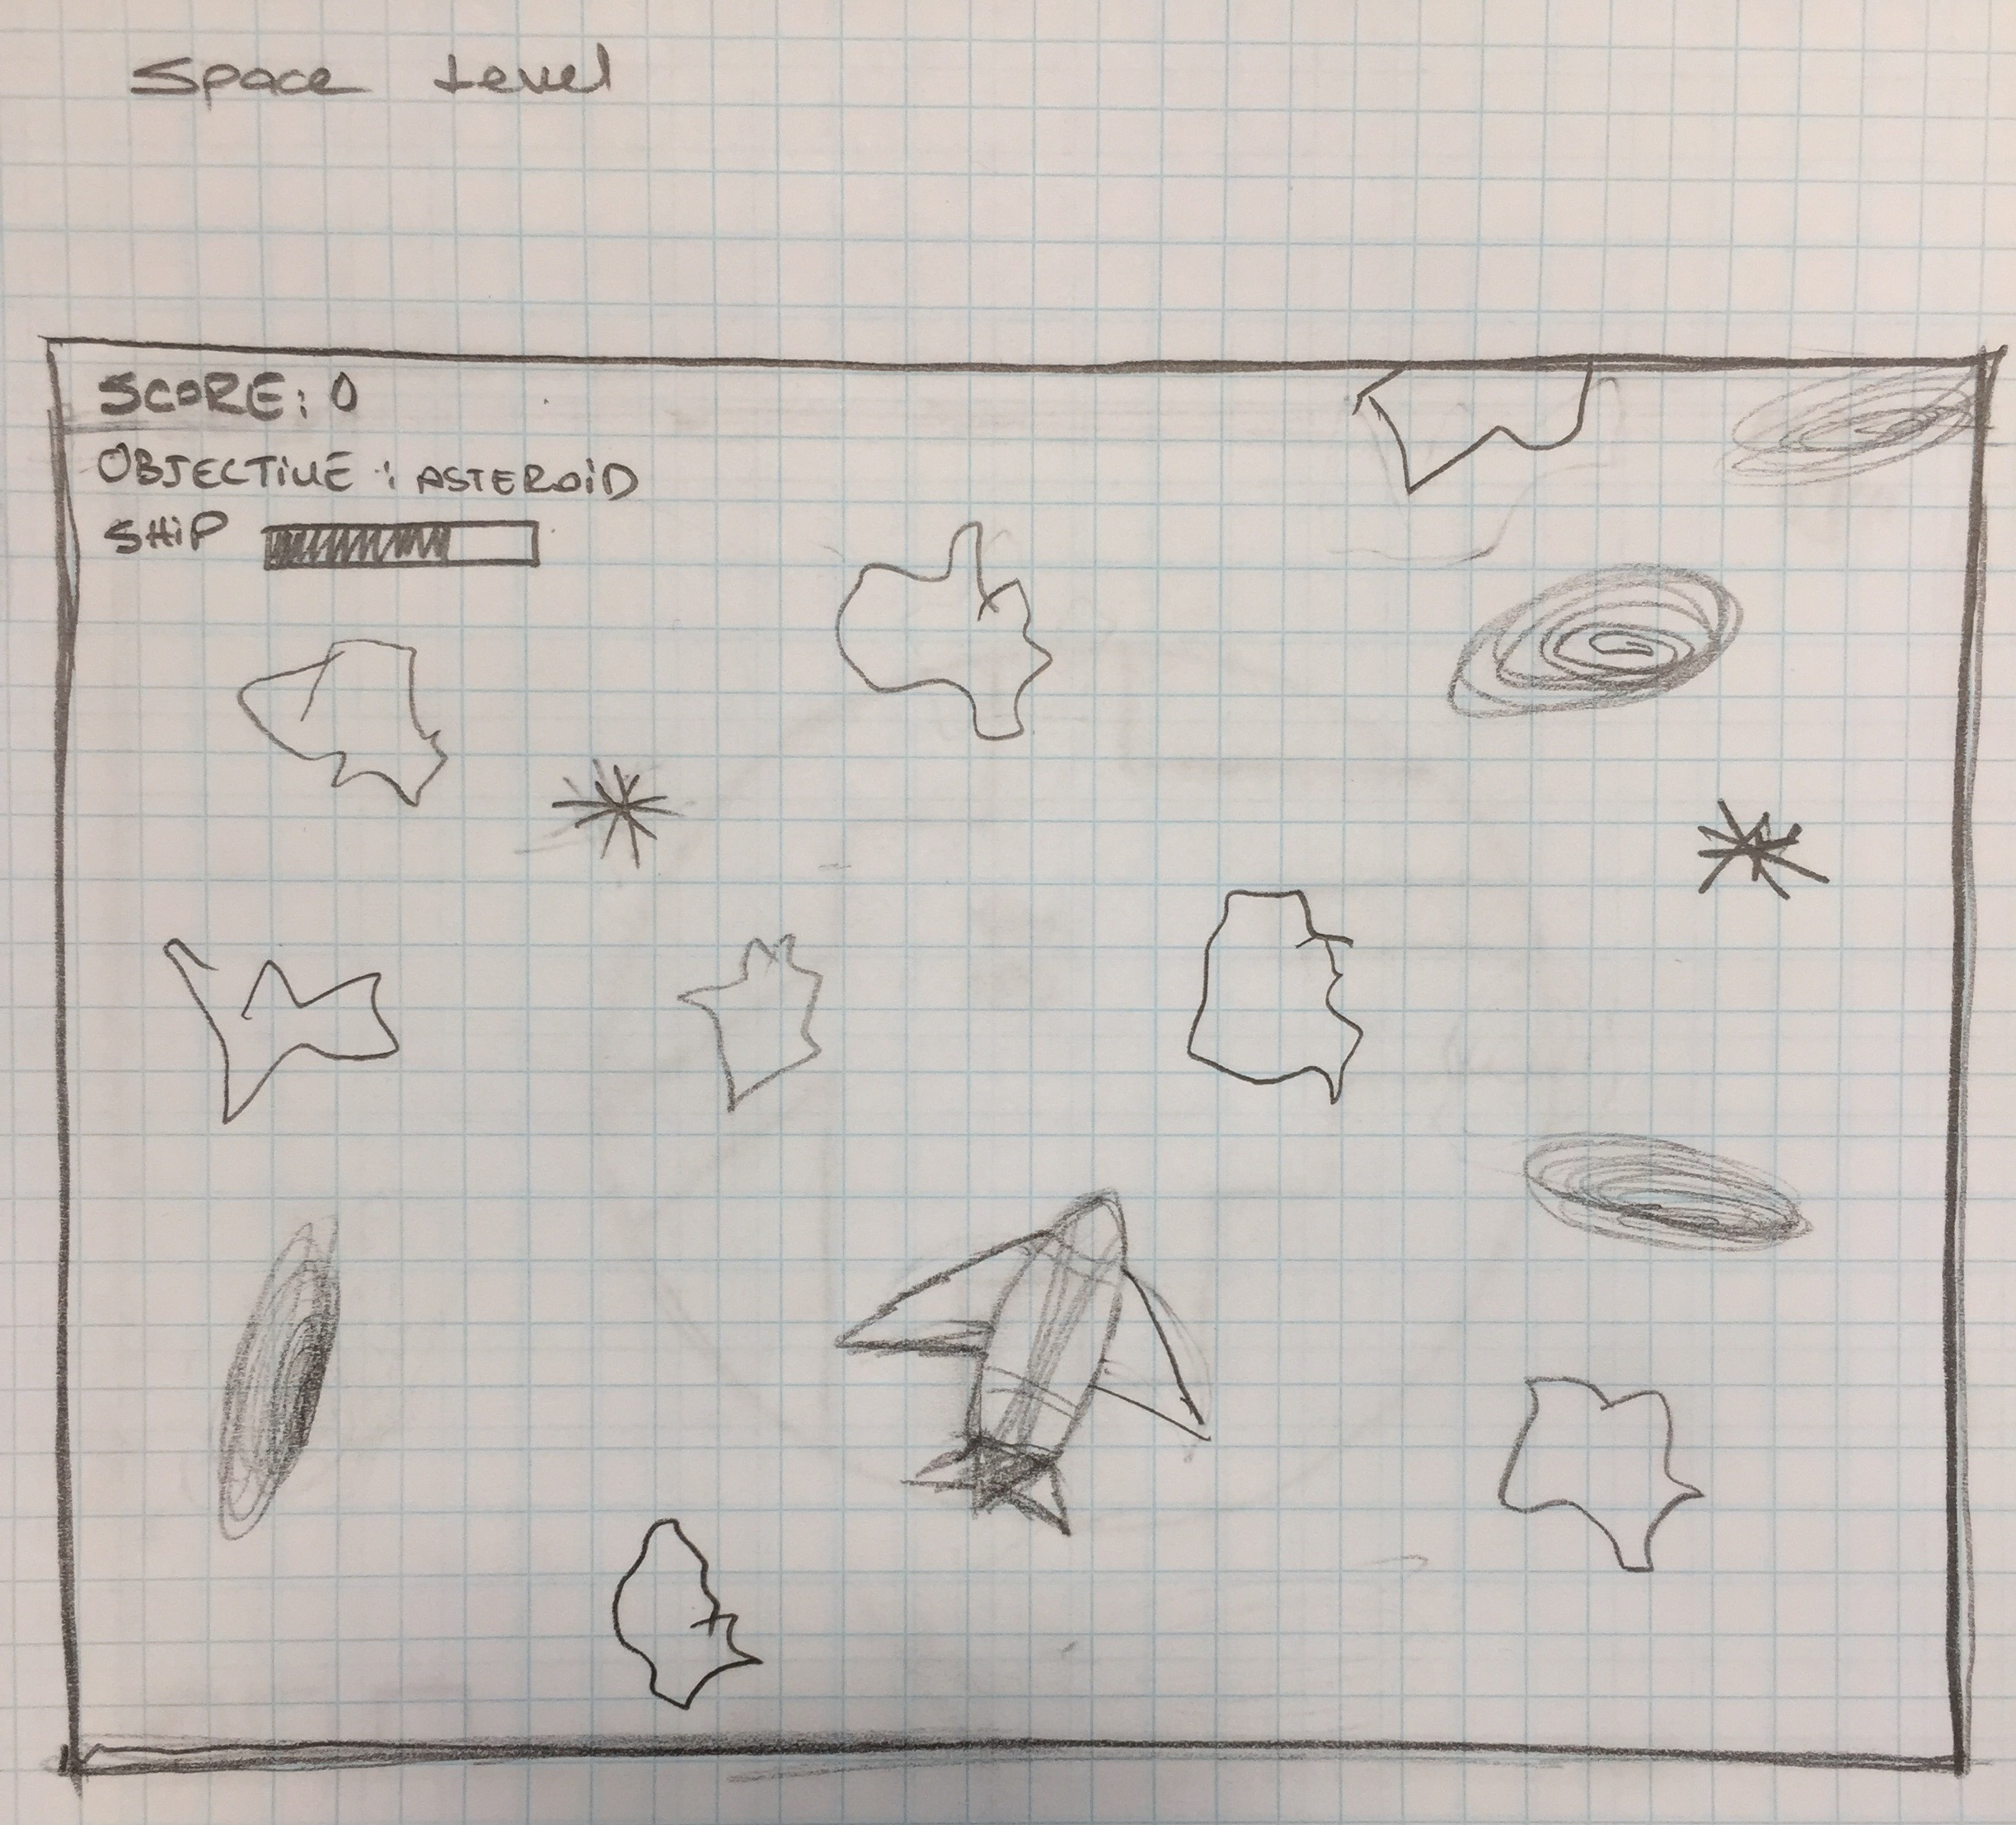 Space Level
SCORE: 0
OBJECTIVE : ASTEROID
SHIP